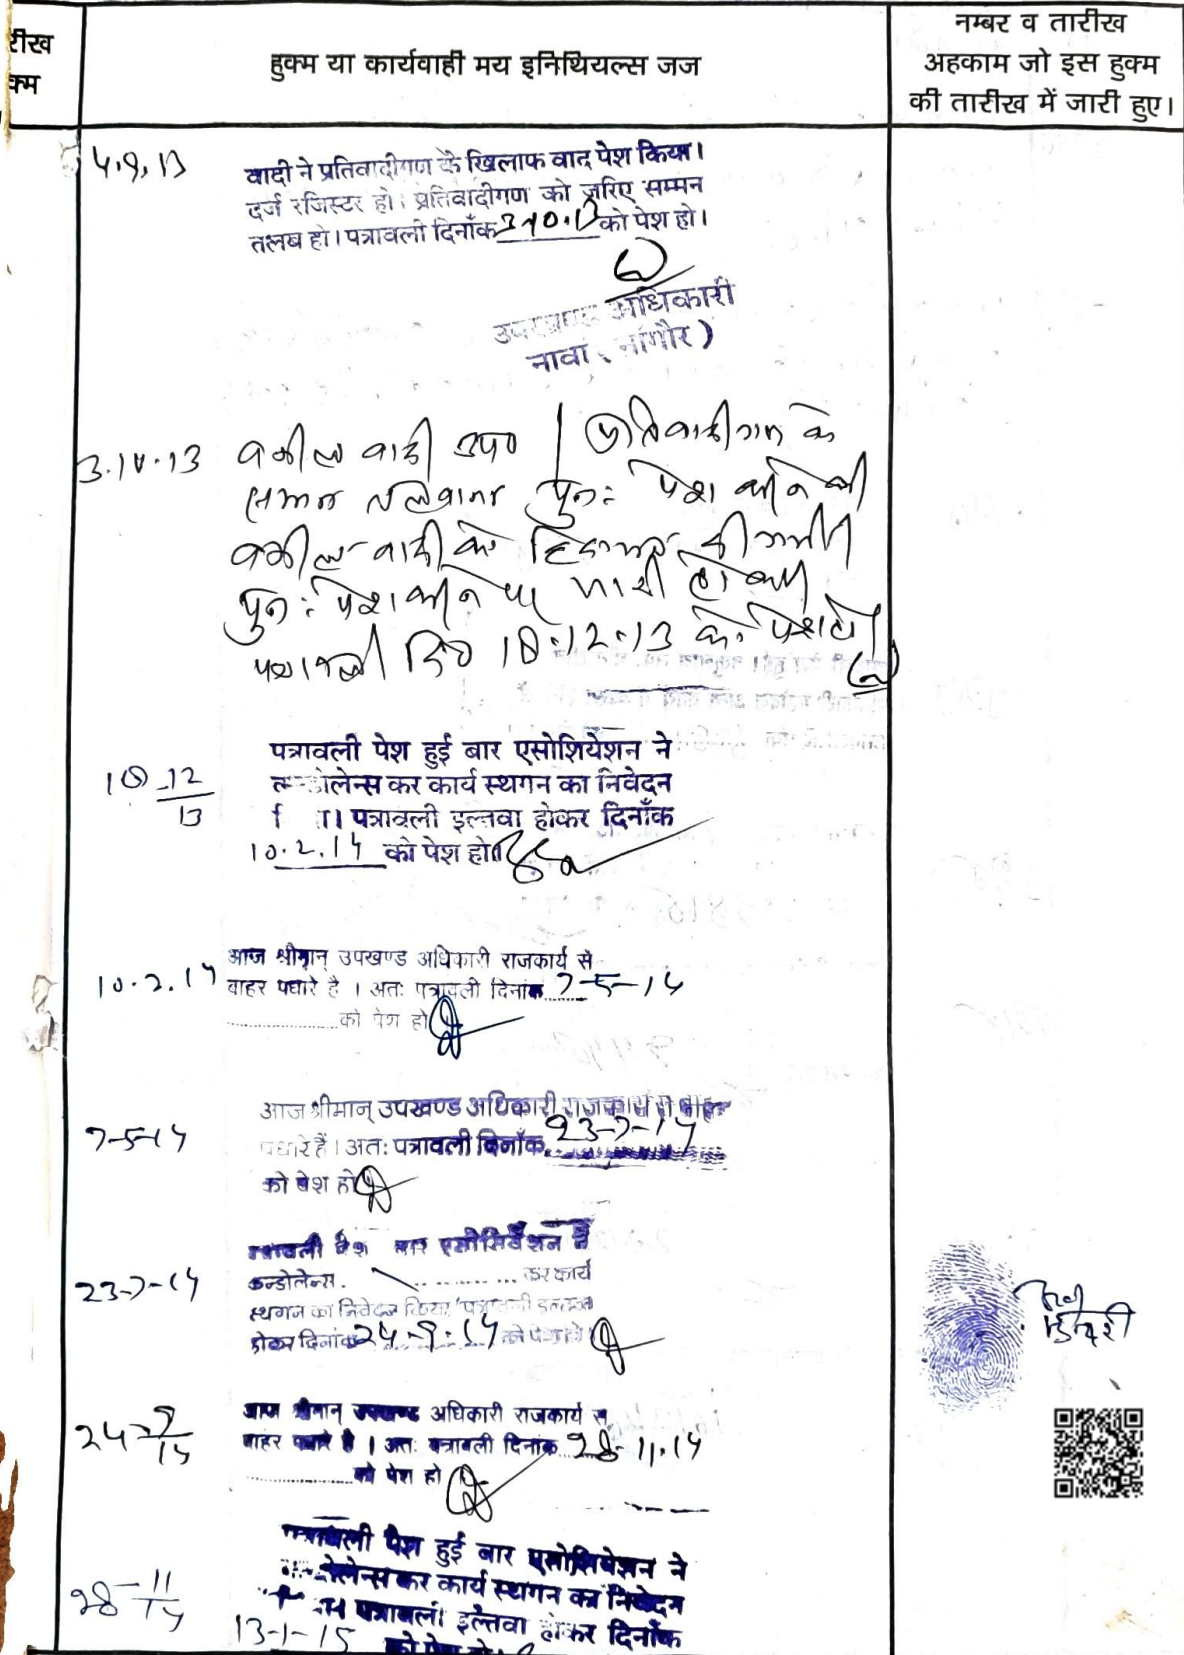 रीख
क्म
हुक्म या कार्यवाही मय इनिथियल्स जज
नम्बर व तारीख
अहकाम जो इस हुक्म
की तारीख में जारी हुए।
4.9.13
वादी ने प्रतिवादीगण के खिलाफ वाद पेश किया।
दर्ज रजिस्टर हो। प्रतिवादीगण को जरिए सम्मन
तलब हो। पत्रावली दिनाँक 3.10.13 को पेश हो।
उपखण्ड अधिकारी
नावां (नागौर)
3.10.13
वकील वादी उप० | प्रतिवादीगण के
सम्मन तलवाना पुनः पेश करने की
वकील वादी को हिदायत की गयी
पुनः पेश करने पर जारी हो
पत्रावली दि० 18.12.13 को पेश हो।
18-12/13
पत्रावली पेश हुई बार एसोशियेशन ने
कर कार्य स्थगन का निवेदन
पत्रावली इल्तवा होकर दिनाँक
10.2.14 को पेश हो।
10.2.14
आज श्रीमान् उपखण्ड अधिकारी राजकार्य से
बाहर पधारे है । अतः पत्रावली दिनांक 7-5-14
को पेश हो
7-5-14
आज श्रीमान् उपखण्ड अधिकारी राजकार्य से बाहर
पधारे हैं। अतः पत्रावली दिनाँक 23-7-14
को पेश हो
23-7-14
पत्रावली पेश बार एसोसियेशन ने
कन्डोलेन्स कर कार्य
स्थगन का निवेदन किया। पत्रावली इल्तवा
होकर दिनांक 24.9.14 को पेश हो।
24-9/14
आज श्रीमान् उपखण्ड अधिकारी राजकार्य से
बाहर पधारे है । अतः पत्रावली दिनांक 28-11.14
को पेश हो
28-11/14
पत्रावली पेश हुई बार एसोशियेशन ने
कर कार्य स्थगन का निवेदन
पत्रावली इल्तवा होकर दिनाँक
13-1-15 को पेश हो।